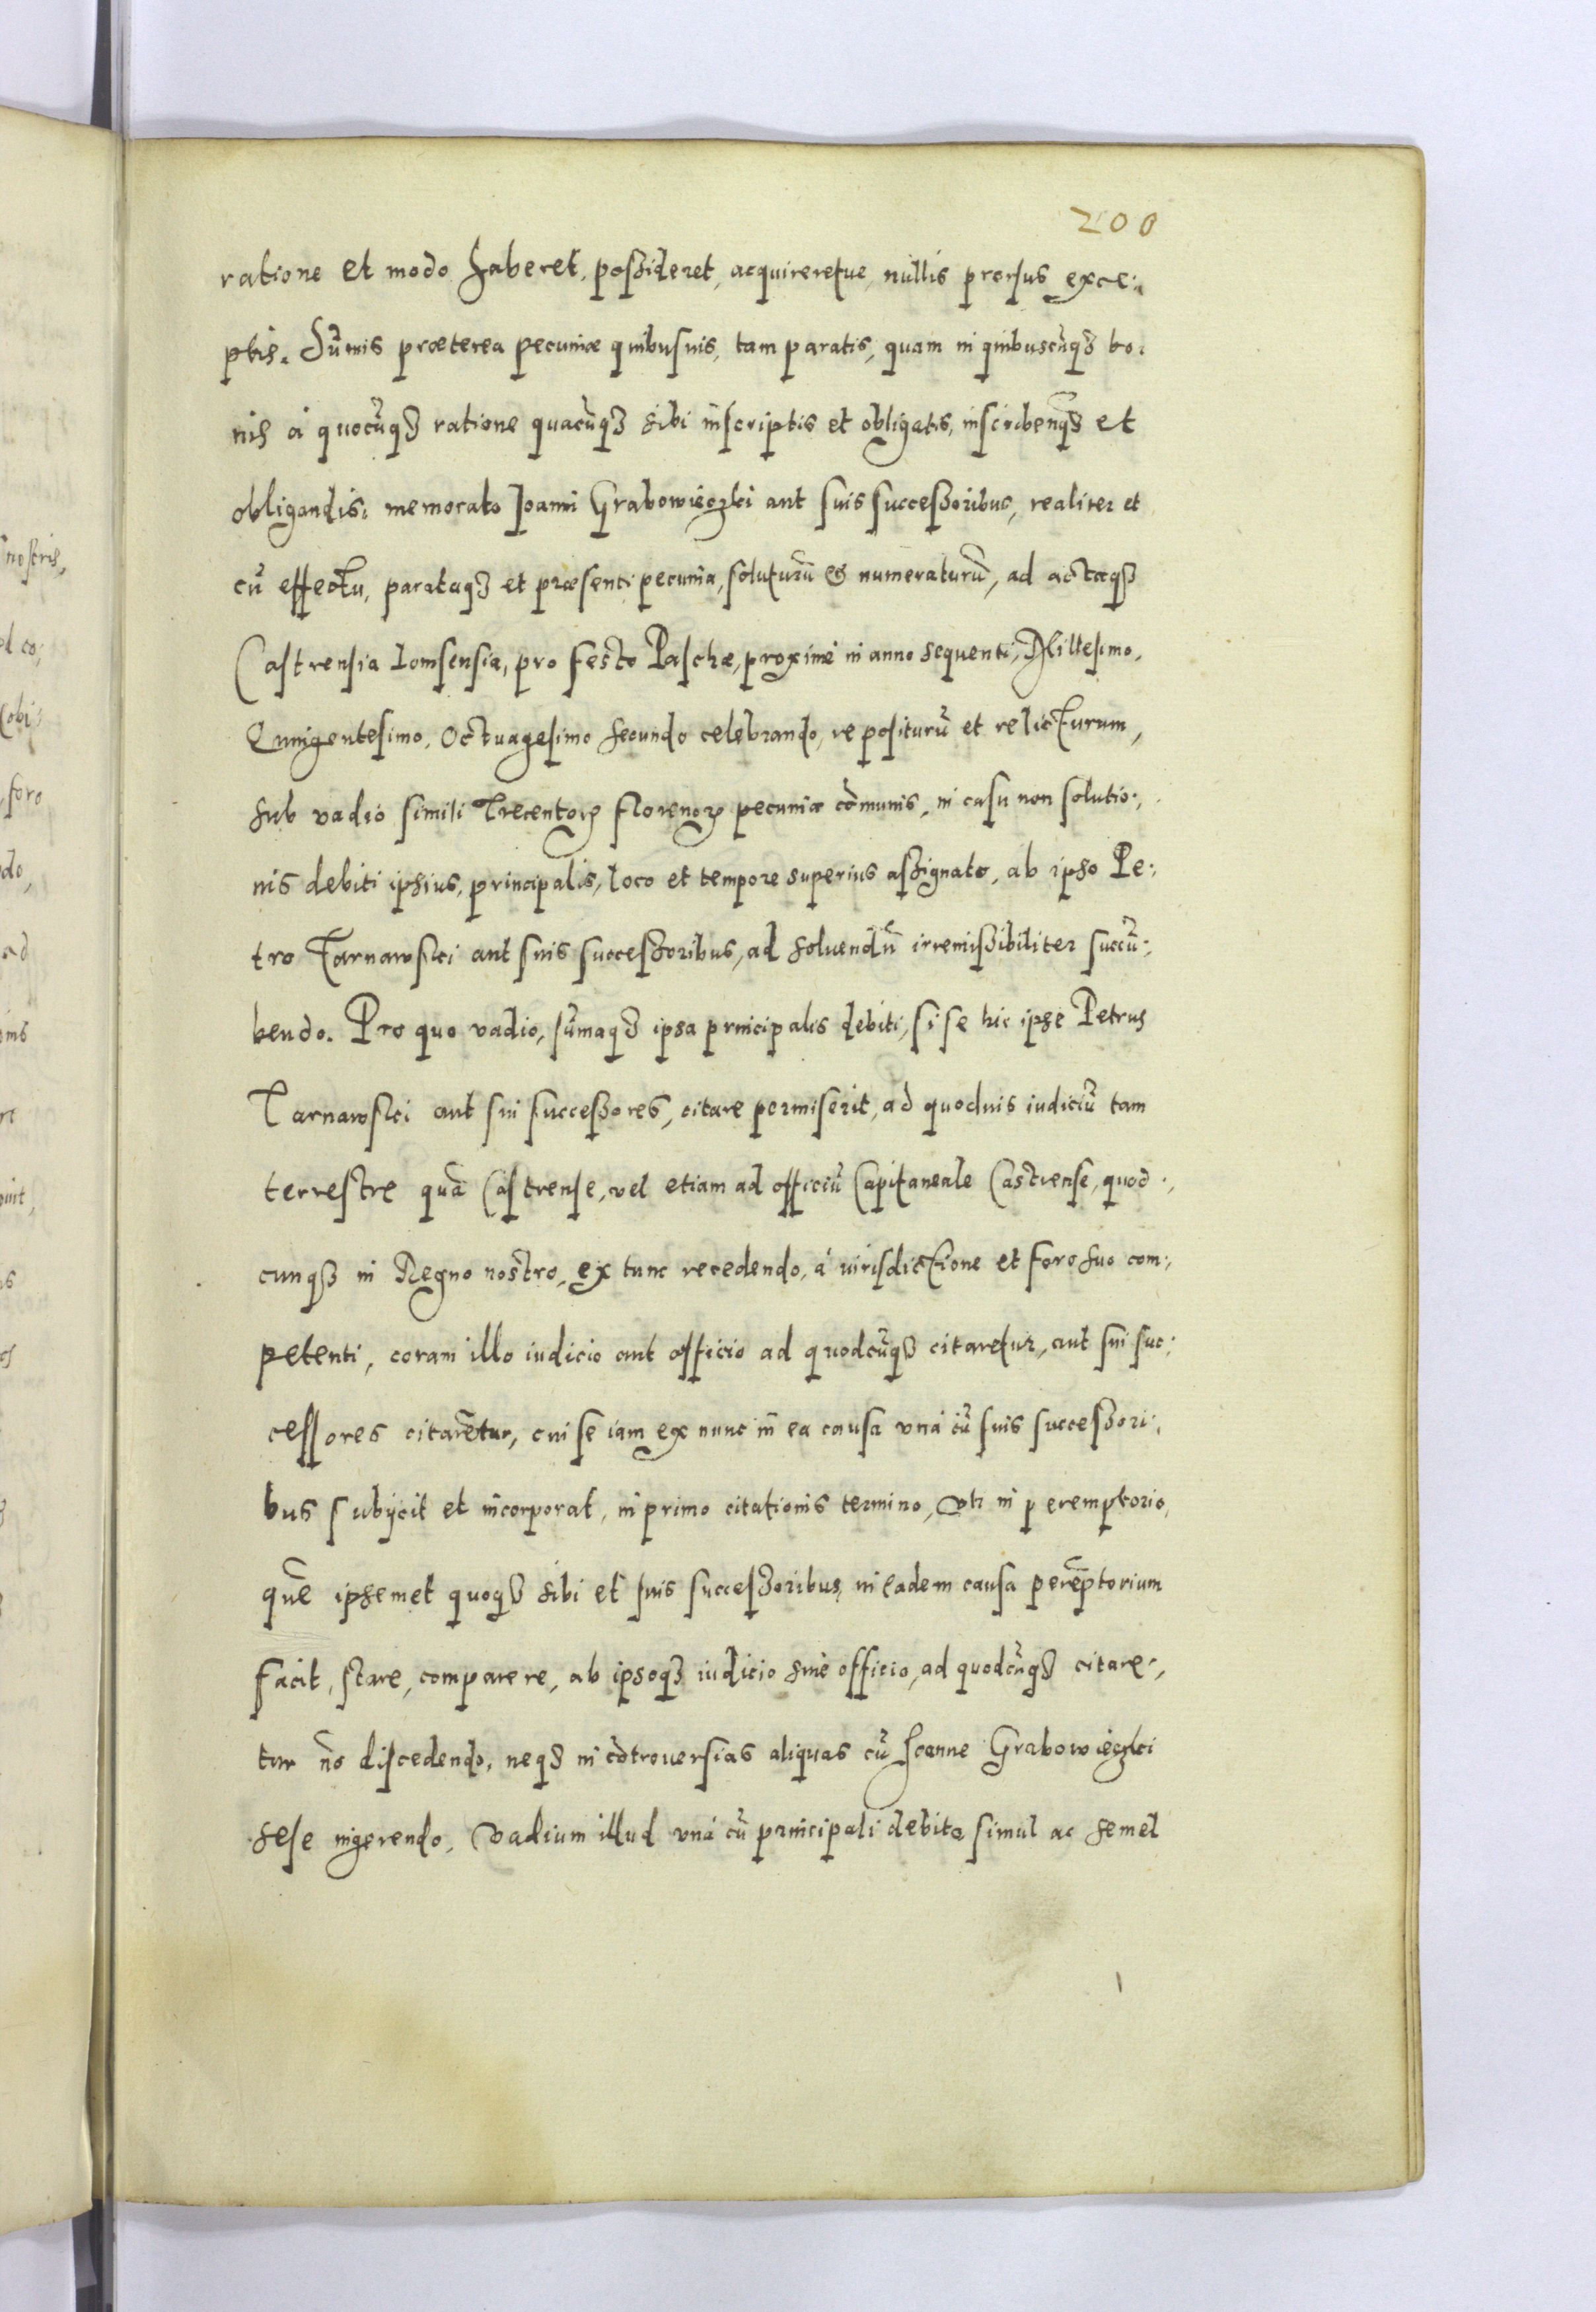 200
ratione et modo haberet, possideret, acquireretue, nullis prorsus exce:
ptis. Sum̃is præterea pecuniæ quibusuis, tam paratis, quam in quibuscũq3 bo:
nis à quocũq3 ratione quacũq3 sibi inscriptis et obligatis, inscribenq3 et
obligandis: memorato Joanni Grabowieczki aut suis successoribus, realiter et
cũ effectu, parataq3 et præsenti pecunia, soluturũ & numeraturũ, ad actaq3
Castrensia Lomsensia, pro festo Paschæ, proximè in anno sequenti, Millesimo,
Quingentesimo, Octuagesimo secundo celebrando, repositurũ et relicturum,
sub vadio simili Trecentorꝝ florenorꝝ pecuniæ cõmunis, in casu non solutio:
nis debiti ipsius, principalis, loco et tempore superius assignato, ab ipso Pe:
tro Tarnawski aut suis successoribus, ad soluendũ irremissibiliter succũ:
bendo. Pro quo vadio, sum̃aq3 ipsa principalis debiti, si se hic ipse Petrus
Tarnawski aut sui successores, citare permiserit, ad quoduis iudiciũ tam
terrestre quã Castrense, vel etiam ad officiũ Capitaneale Castrense, quod:
cunq3 in Regno nostro, ex tunc recedendo, à iurisdictione et foro suo com:
petenti, coram illo iudicio aut officio ad quodcũq3 citaretur, aut sui suc:
cessores citarẽtur, cui se iam ex nunc in ea causa vnà cũ suis successori:
bus subijcit et incorporat, in primo citationis termino, vti in peremptorio,
quẽ ipsemet quoq3 sibi et suis successoribus, in eadem causa perẽptorium
facit, stare, comparere, ab ipsoq3 iudicio siue officio, ad quodcũq3 citare:
tur nõ discedendo, neq3 in cõtrouersias aliquas cũ Joanne Grabowieczki
sese ingerendo, Vadium illud vnà cũ principali debito simul ac semel